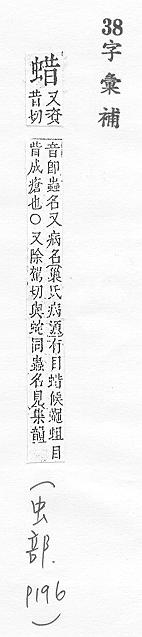 38字彙補
蜡
又資
昔切
音即蟲名又病名巢氏病源有目蜡候蠅蛆目
眥成瘡也○又除駕切與蛇同蟲名見集韻
(虫部.P196)